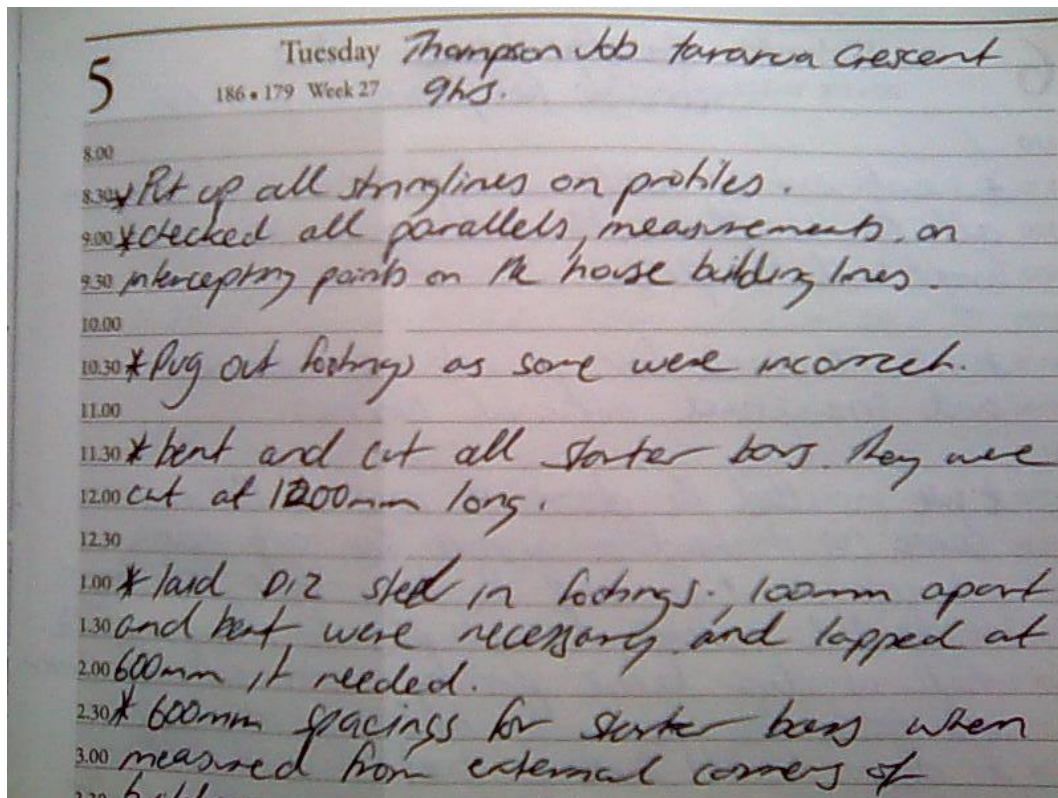 5 Tuesday Thompson Job Tararua Crescent
186 • 179 Week 27 9hrs.
8.00
8.30 * Put up all stringlines on profiles.
9.00 * checked all parallels, measurements. on
9.30 intercepting points on the house building lines.
10.00
10.30 * Dug out footings as some were incorrect.
11.00
11.30 * bent and cut all starter bars. they were
12.00 cut at 1200mm long.
12.30
1.00 * laid D12 steel in footings., 100mm apart
1.30 and bent were necessary and lapped at
2.00 600mm if needed.
2.30 * 600mm spacings for starter bars when
3.00 measured from external corners of
3.30